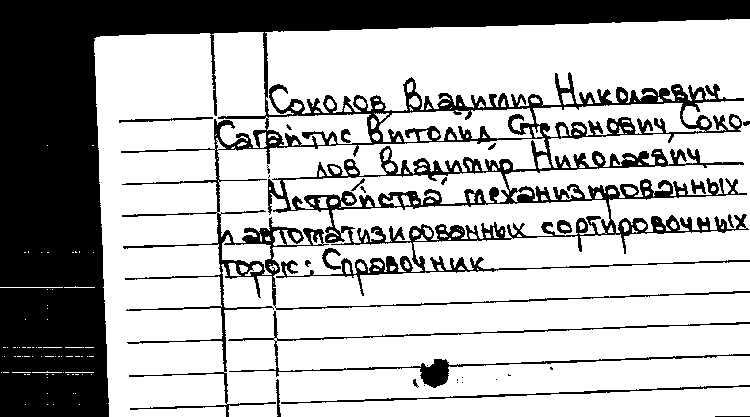 Соколов Владимир Николаевич.
Сагайтис Витольд Степанович, Соко-
лов Владимир Николаевич
Устройства механизированных
и автоматизированных сортировочных
горок: Справочник.